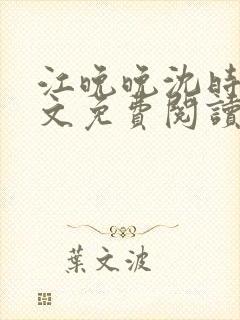 江晚晚沈時
文免費閱讀
葉文波